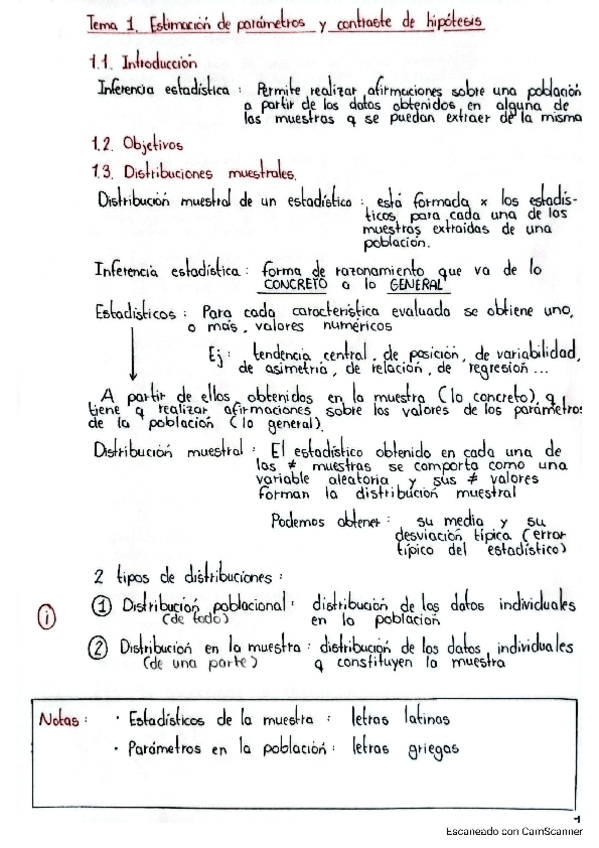 Tema 1. Estimación de parámetros y contraste de hipótesis
1.1. Introducción
Inferencia estadística : Permite realizar afirmaciones sobre una población
a partir de los datos obtenidos en alguna de
las muestras q se puedan extraer de la misma
1.2. Objetivos
1.3. Distribuciones muestrales.
Distribución muestral de un estadístico : está formada x los estadís-
ticos para cada una de las
muestras extraídas de una
población.
Inferencia estadística : forma de razonamiento que va de lo
CONCRETO a lo GENERAL
Estadísticos : Para cada característica evaluada se obtiene uno,
o más, valores numéricos
Ej : tendencia central, de posición, de variabilidad,
de asimetría, de relación, de regresión ...
A partir de ellos, obtenidos en la muestra (lo concreto), q
tiene q realizar afirmaciones sobre los valores de los parámetros
de la población (lo general).
Distribución muestral : El estadístico obtenido en cada una de
las ≠ muestras se comporta como una
variable aleatoria y sus ≠ valores
forman la distribución muestral
Podemos obtener : su media y su
desviación típica (error
típico del estadístico)
2 tipos de distribuciones :
i ① Distribución poblacional : distribución de los datos individuales
(de todo) en la población
② Distribución en la muestra : distribución de los datos individuales
(de una parte) q constituyen la muestra
Notas : · Estadísticos de la muestra : letras latinas
· Parámetros en la población : letras griegas
1
Escaneado con CamScanner